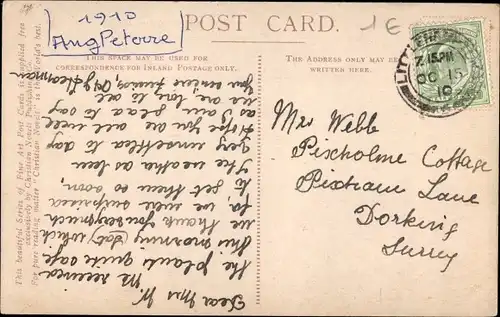 1910
Ang Petoire
POST CARD.
1 E
THIS SPACE MAY BE USED FOR
CORRESPONDENCE FOR INLAND POSTAGE ONLY.
THE ADDRESS ONLY MAY BE
WRITTEN HERE.
LITTLEHAMPTON
7.15PM
OC 15
10
Mrs Webb
Pixholme Cottage
Pixham Lane
Dorking
Surrey
Dear Mrs W.
We received
the plants quite safe
this morning (Sat) which
we thank you very much
for, were surprised
to get them so soon,
The weather as been
very unsettled to day
Hope you are well
as I am pleas to say
we are. love to all
This beautiful Series of Fine Art Post Cards is supplied free
exclusively by Christian Novels Publishing Co.
For pure reading matter "Christian Novels" is the World's best.